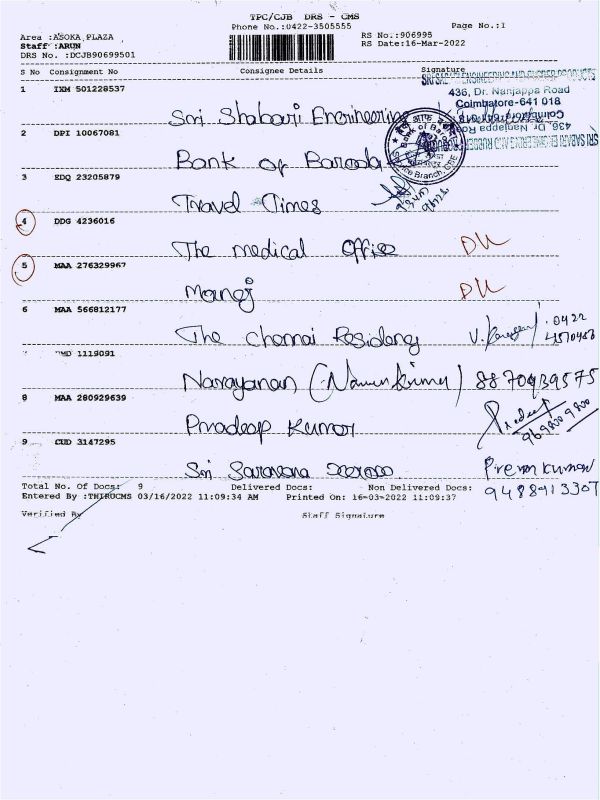 TPC/CJB DRS - CMS
Phone No.:0422-3505555
Page No.:1
Area :ASOKA PLAZA
Staff :ARUN
DRS No. :DCJB90699501
RS No.:906995
RS Date:16-Mar-2022
S No Consignment No Consignee Details Signature
1 IXM 501228537
Sri Shabari Engineering
436, Dr. Nanjappa Road
Coimbatore-641 018
2 DPI 10067081
Bank of Baroda
3 EDQ 23205879
Travel Times
4 DDG 4236016
The medical office DU
5 MAA 276329967
Manoj DU
6 MAA 566812177
The Chennai Residency
1119091
Narayanan 8870939575
8 MAA 280929639
Pradeep Kumar Pradeep
9698009800
9 CUD 3147295
Sri Saravana
Prem Kumar
9488913307
Total No. Of Docs: 9 Delivered Docs: Non Delivered Docs:
Entered By :THIRUCMS 03/16/2022 11:09:34 AM Printed On: 16-03-2022 11:09:37
Verified By Staff Signature